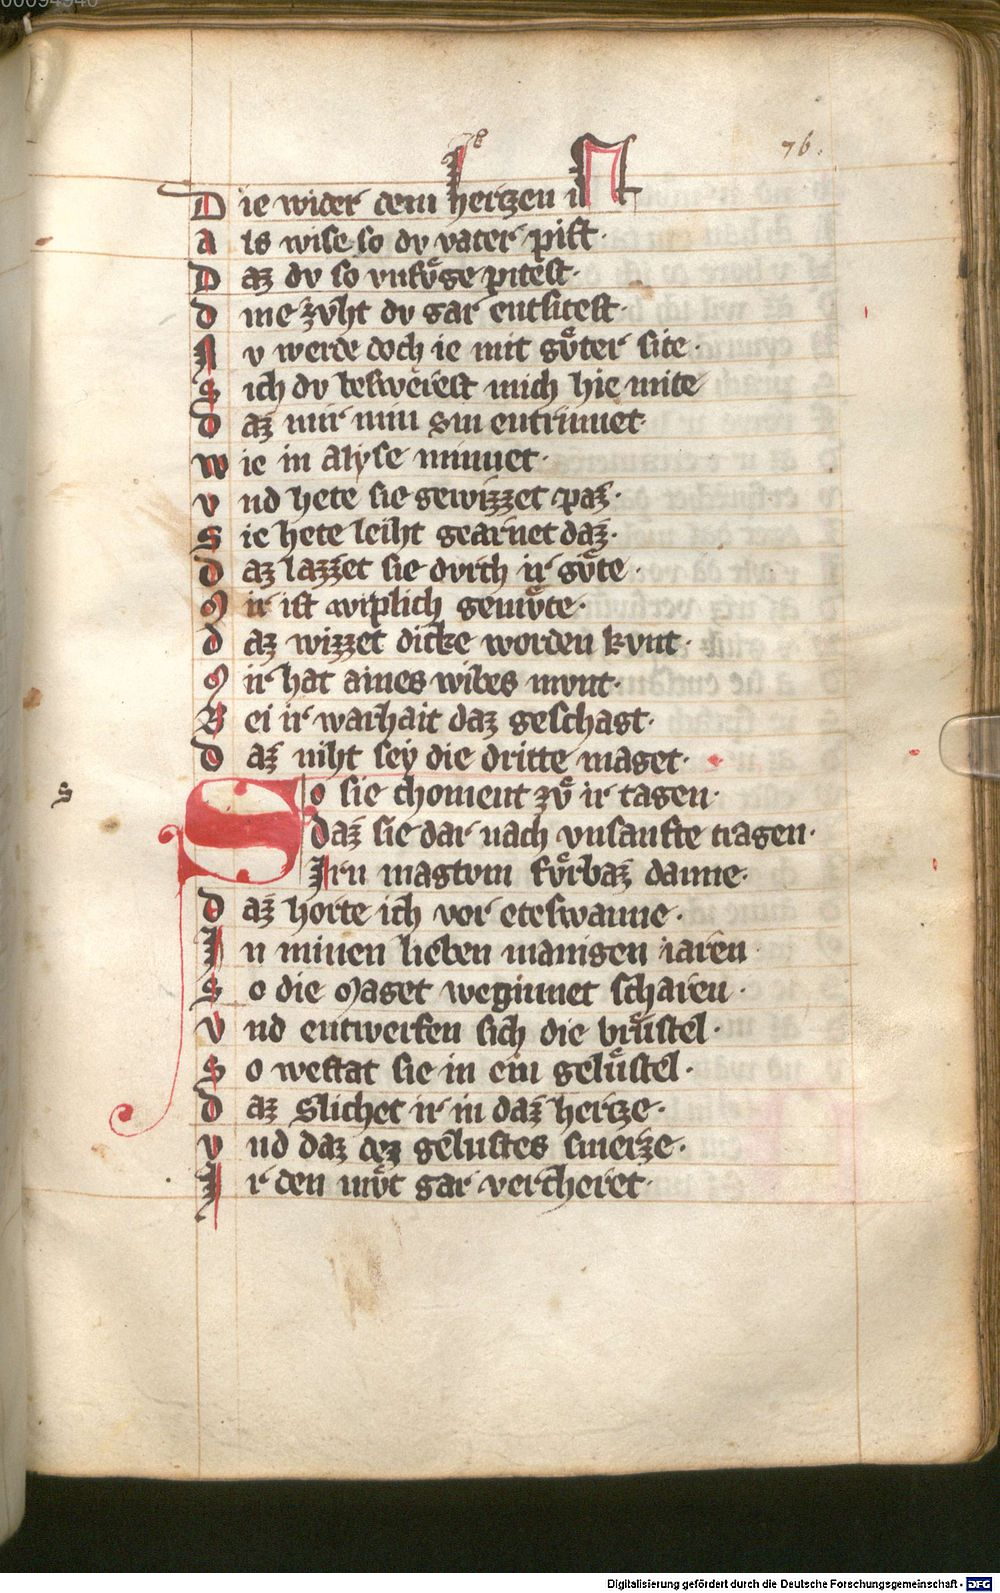 00094946
76.
Die wider dem hertzen i
Als wise so dv vater pist·
Daz dv so vnfvͦge pitest·
dine zvht dv gar entsitest·
Nv werde doch ie mit gvͦter site·
Sich dv beswerest mich hie mite
daz mir min sin entrinnet·
wie in alyse minnet·
vnd hete sie gewizzet paz·
Sie hete leiht gearnet daz·
daz lazzet sie dvrch ir gvͦte·
Mir ist wiplich gemvͦte·
daz wizzet dicke worden kvnt·
Mir hat aines wibes mvnt·
Bei ir warhait daz geschagt·
daz niht sey die dritte maget·
s
So sie choment zvͦ ir tagen·
daz sie dar nach vnsanfte tragen·
Irn magtvm fvͦrbaz danne·
daz horte ich vor eteswanne·
In minen lieben manigen iaren
So die Maget weginnet scharen·
Vnd entwerfen sich die brustel·
So westat sie in ein gelustel·
daz slichet ir in daz hertze·
vnd daz dez gelustes smerze·
Ir den mvͦt gar vercheret·
Digitalisierung gefördert durch die Deutsche Forschungsgemeinschaft - DFG